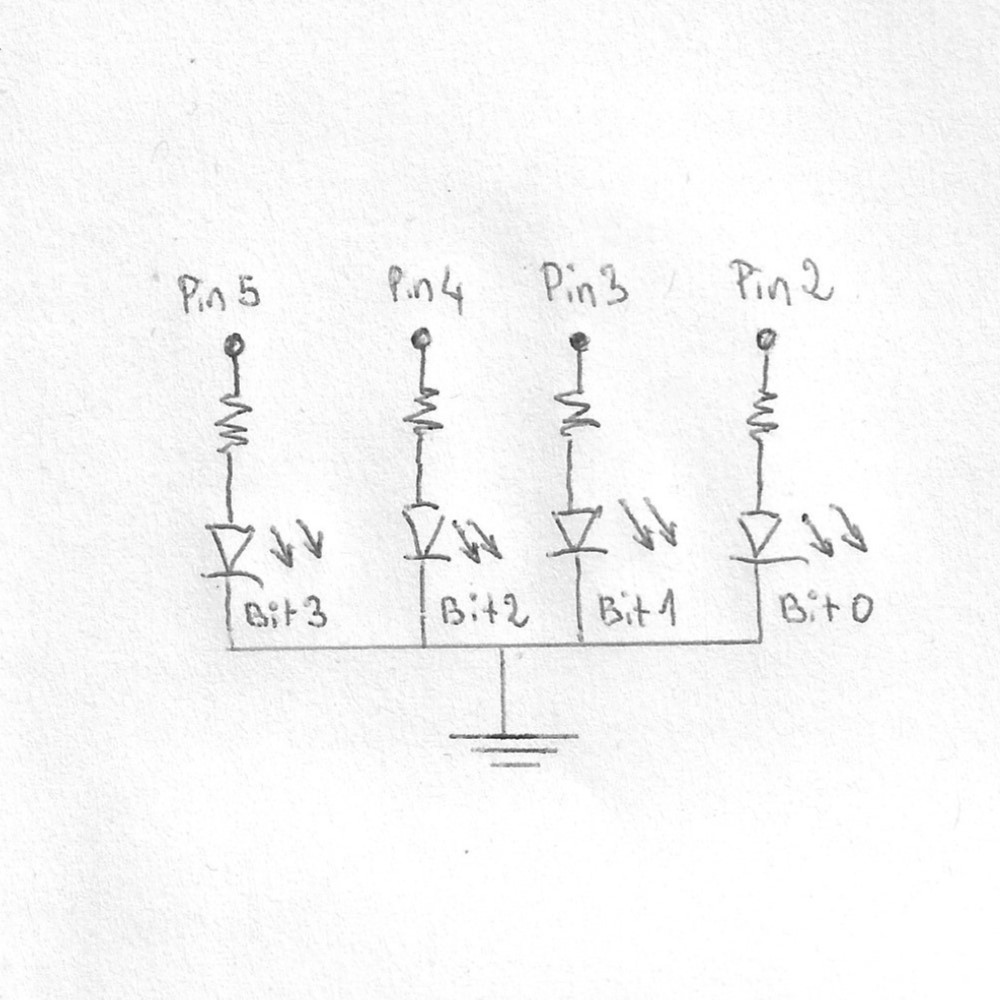 Pin 5 Pin 4 Pin 3 Pin 2
Bit 3 Bit 2 Bit 1 Bit 0